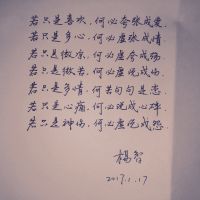 若只是喜欢，何必夸张成爱
若只是多心，何必虚张成情
若只是微凉，何必夸成殇
若只是微苦，何必虚说成伤
若只是多情，何苦句句是恋
若只是心痛，何必说成心碎
若只是神伤，何必虚说成怨
楊智
2017.1.17